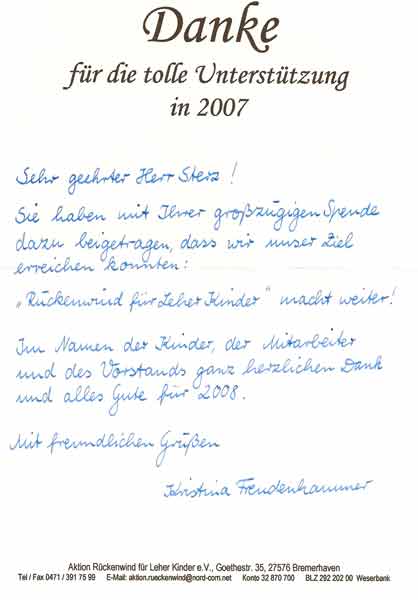 Danke
für die tolle Unterstützung
in 2007
Sehr geehrter Herr Sterz!
Sie haben mit Ihrer großzügigen Spende
dazu beigetragen, dass wir unser Ziel
erreichen konnten:
„Rückenwind für Leher Kinder" macht weiter!
Im Namen der Kinder, der Mitarbeiter
und des Vorstands ganz herzlichen Dank
und alles Gute für 2008.
Mit freundlichen Grüßen
Kristina Freudenhammer
Aktion Rückenwind für Leher Kinder e.V., Goethestr. 35, 27576 Bremerhaven
Tel / Fax 0471 / 391 75 99 E-Mail: aktion.rueckenwind@nord-com.net Konto 32 870 700 BLZ 292 202 00 Weserbank